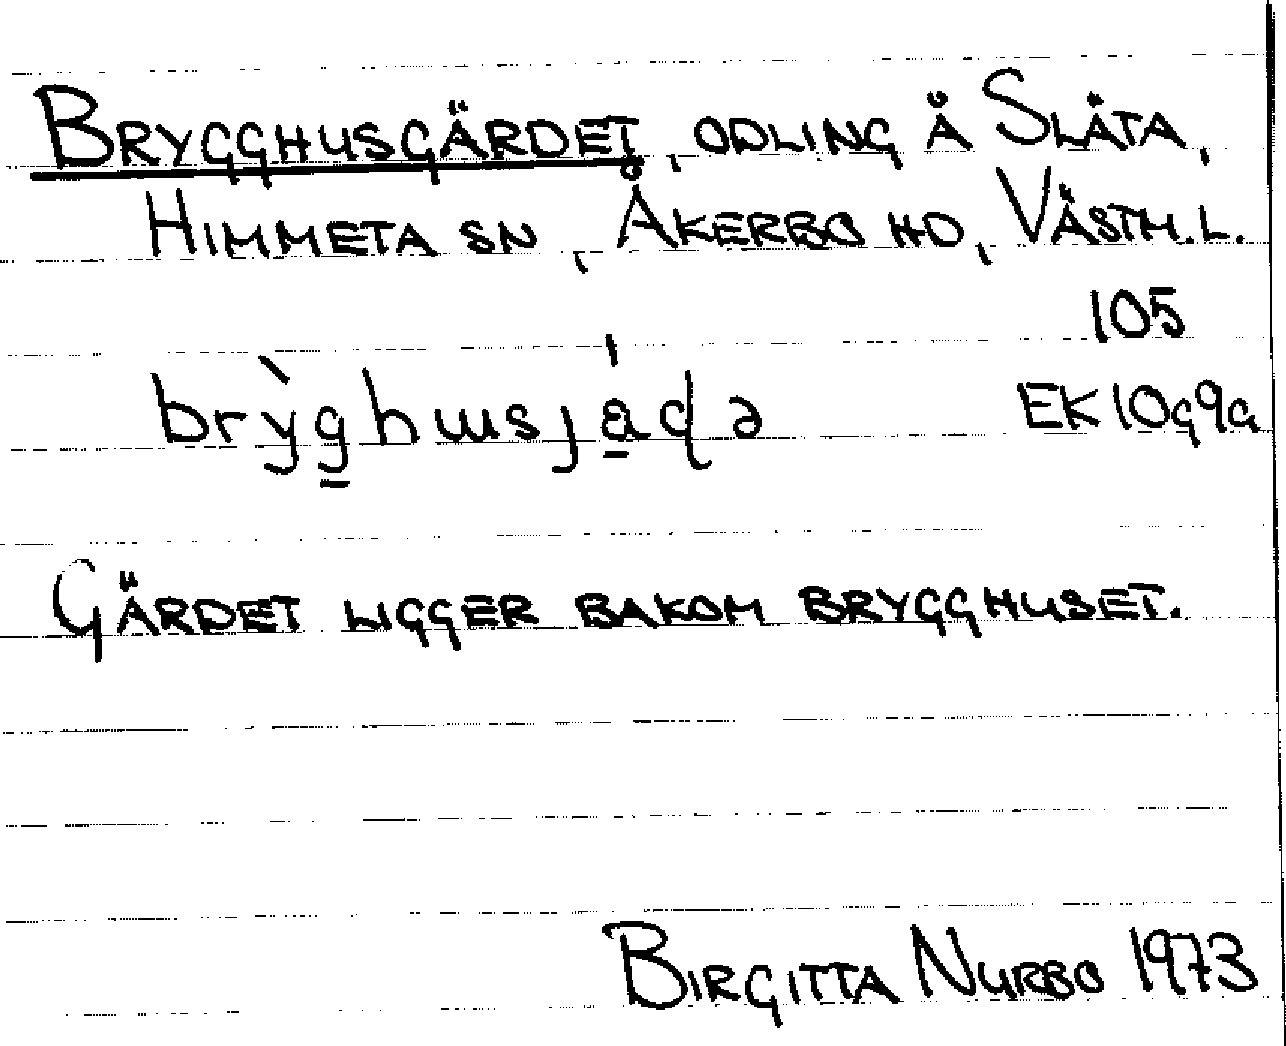 BRYGGHUSGÄRDET, ODLING Å SLÄTA,
HIMMETA SN, ÅKERBO HD, VÄSTM.L.
105
EK10g9a
GÄRDET LIGGER BAKOM BRYGGHUSET.
BIRGITTA NURBO 1973